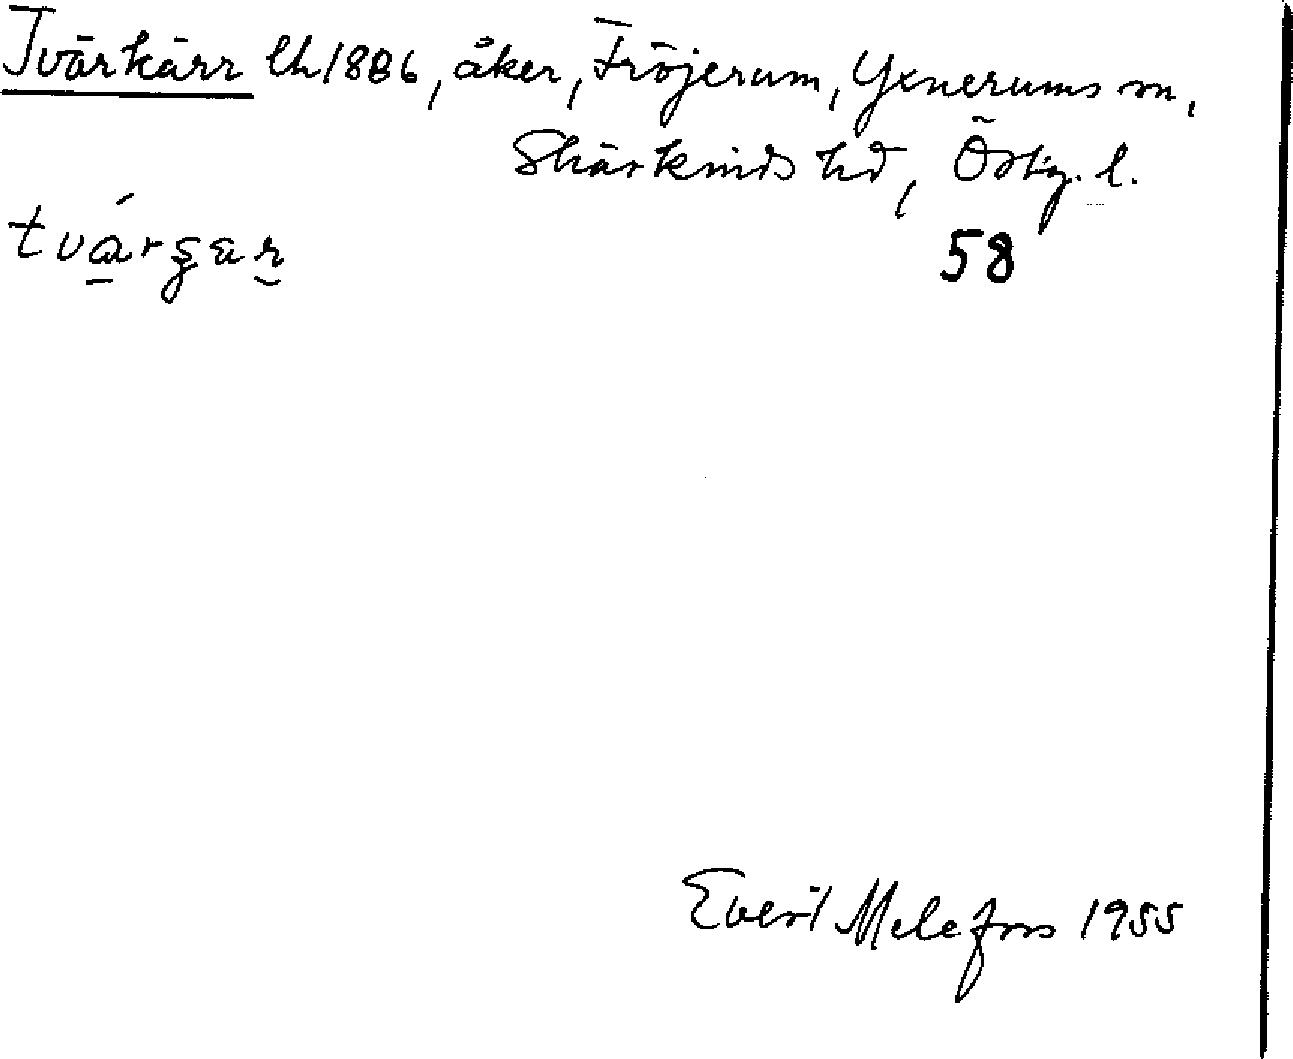 Tvärkärr lh 1886, åker, Fröjerum, Yxnerums sn,
Skärkinds hd, Östg. l.
58
Evert Melefors 1955